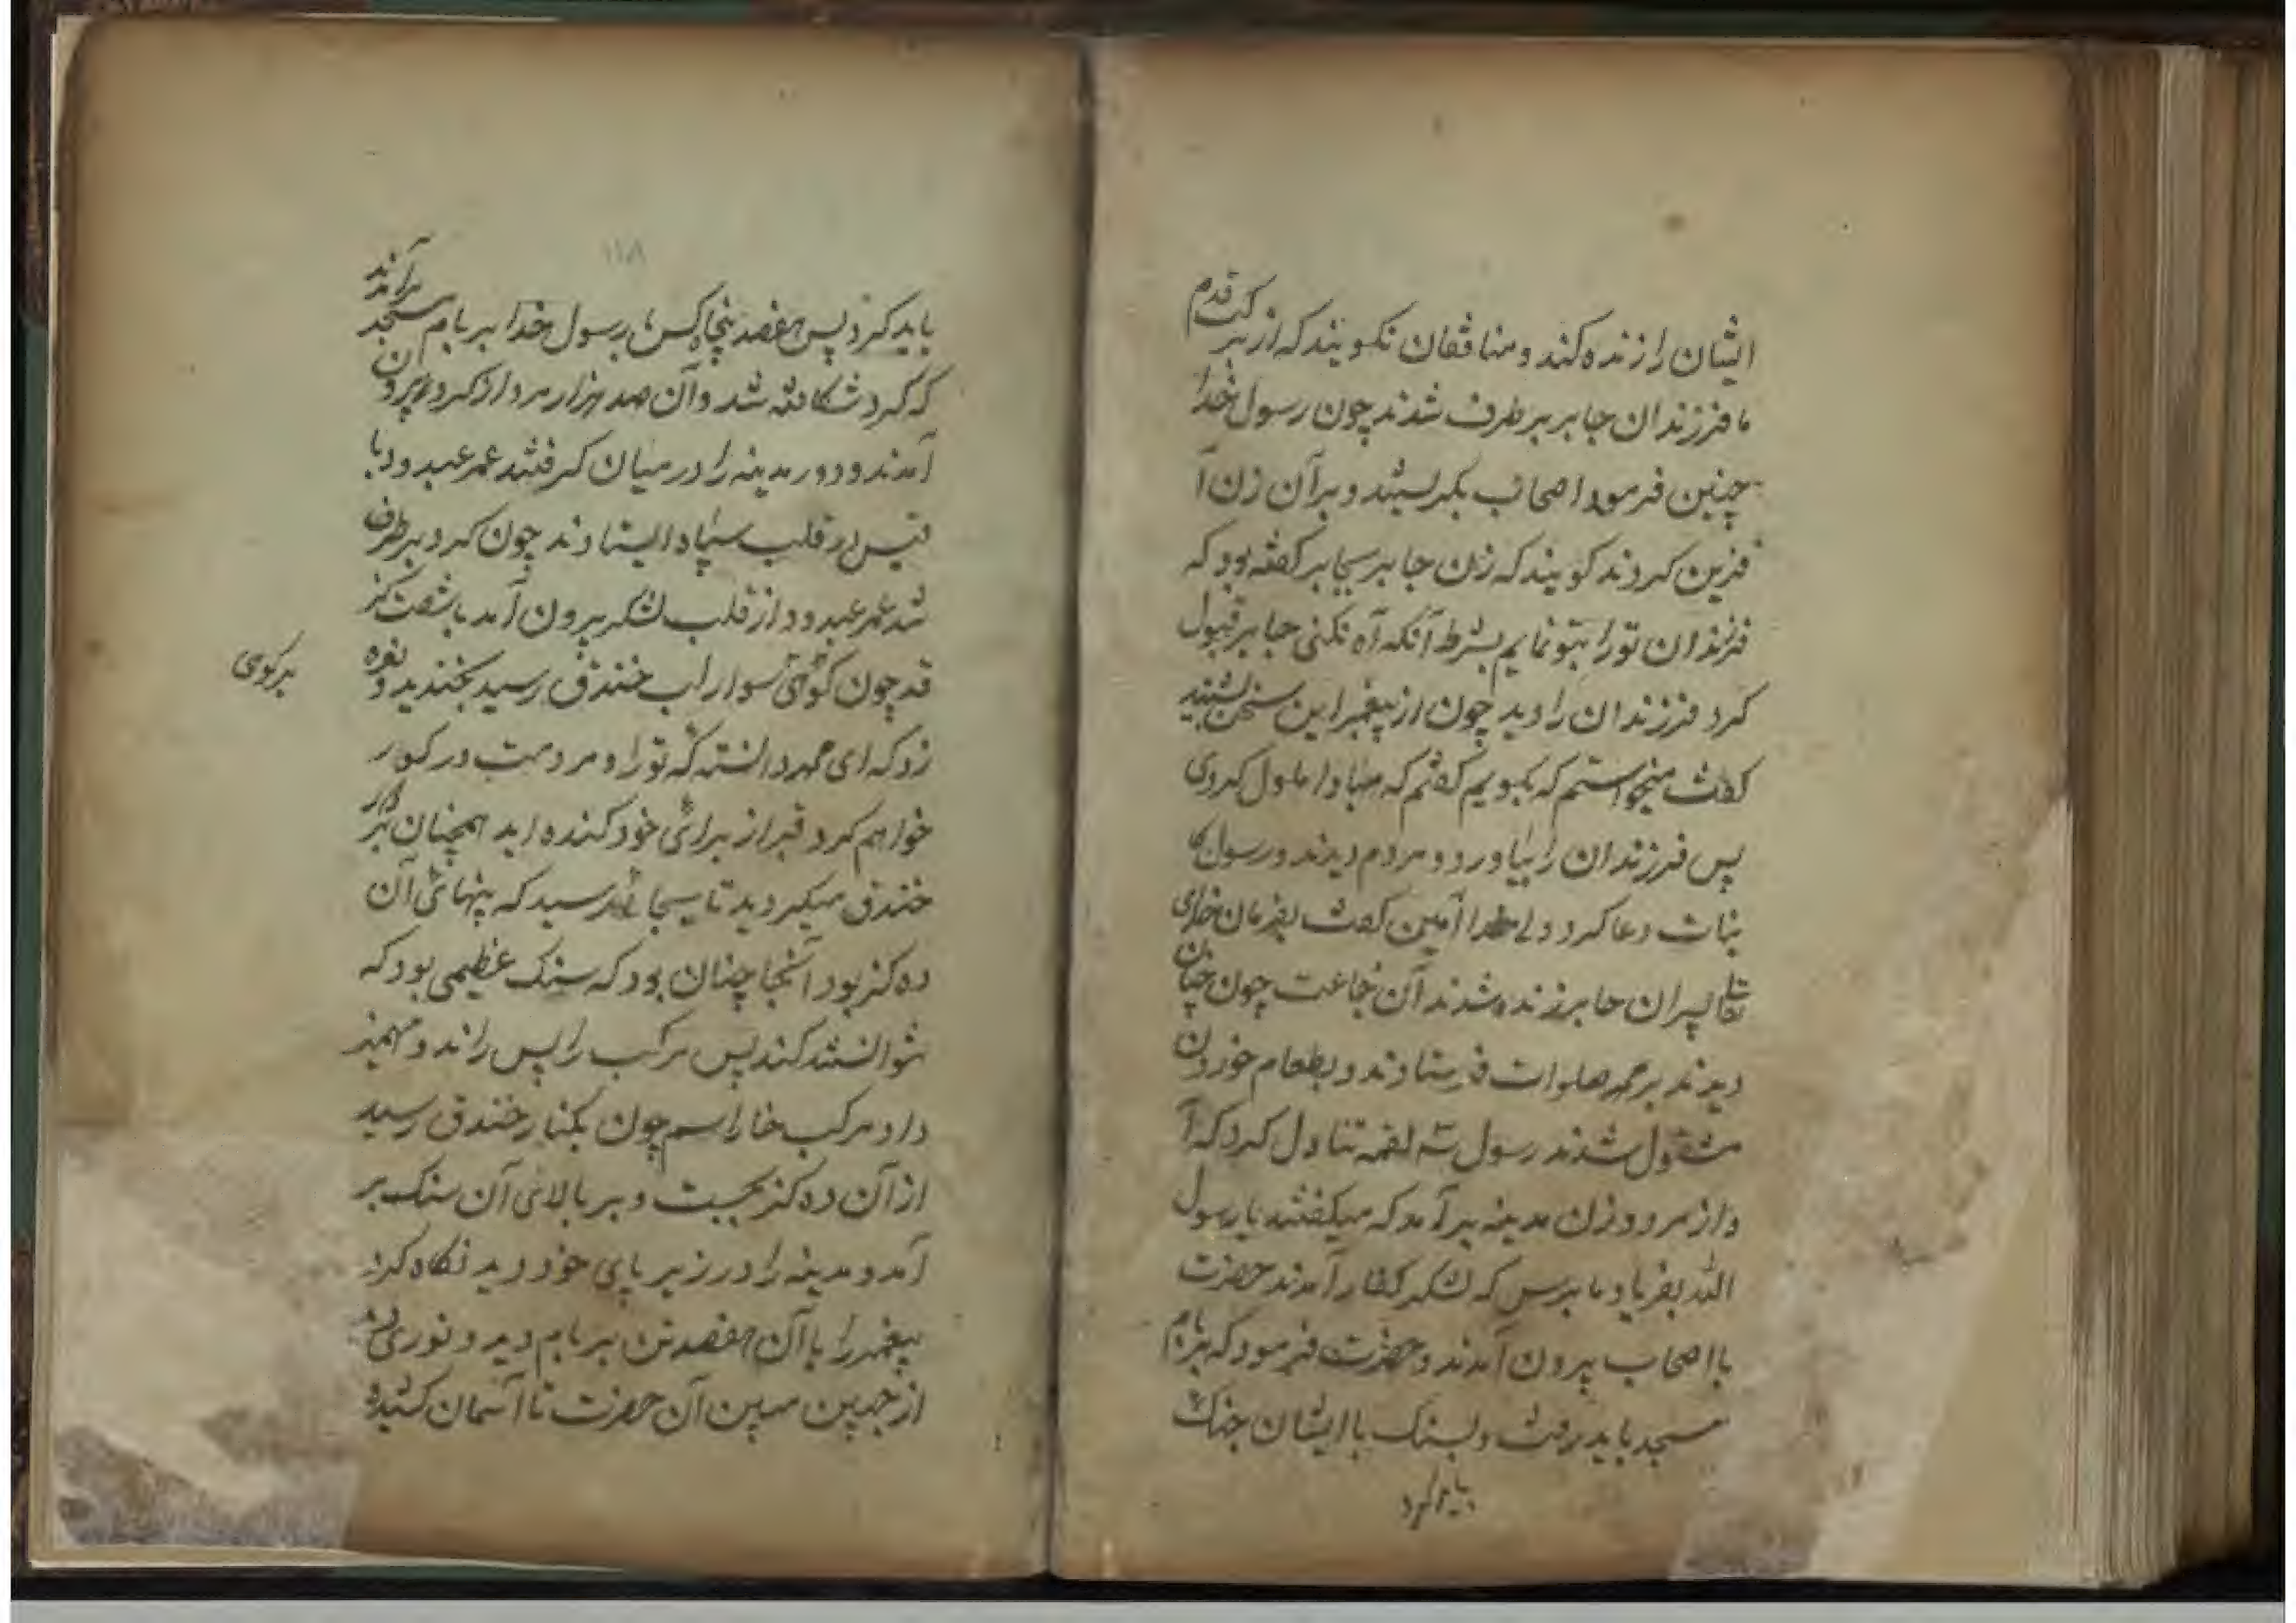 ایشان را زنده کند و منافقان نکویند که از برکت قدم
ما فرزندان جابر بر طرف شدند چون رسول خدا
چنین فرمود اصحاب بکریستند و بر آن زن آ
فرین کردند کویند که زن جابر بجابر کفته بود که
فرزندان تو را بتو نمایم بشرط آنکه آه نکنی جابر قبول
کرد فرزندان را دید چون از پیغمبر این سخن بشنید
کفت میخواستم که بکویم کفتم که مبادا ملول کردی
پس فرزندان را بیاورد و مردم دیدند و رسول کا
ینات دعا کرد و ولی خدا آمین کفت بفرمان خدای
تعالی پسران جابر زنده شدند آن جماعت چون چنان
دیدند بر محمد صلوات فرستادند و بطعام خوردن
مشقول شدند رسول سه لقمه تناول کرد که آ
واز مرد و زن مدینه بر آمد که میکفتند یا رسول
الله بفریاد ما برس که لشکر کفار آمدند حضرت
با اصحاب بیرون آمدند و حضرت فرمود که بر بام
مسجد باید رفت و بسنک با ایشان جنک
باید کرد
۱۱۸
باید کرد پس هفصد پنجاه کس با رسول خدا بر بام مسجد برآمدند
که کرد شکافته شد و آن صد هزار مرد از کرد بیرون
آمدند و دور مدینه را در میان کرفتند عمر عبدود با
قیس در قلب سپاه ایستادند چون کرد بر طرف
شد عمر عبدود از قلب لشکر بیرون آمد با شصت کز
قد چون کوهی سوار لب خندق رسید بخندید و نعره
زد که ای محمد دانسته که تو را و مردمت در کور
خواهم کرد قبر از برای خود کنده اید همچنان بر کنار
خندق میکردید تا بجائی رسید که پنهائی آن
ده کز بود آنجا چنان بود که سنک عظیمی بود که
نتوانستند کند پس مرکب را پس راند و مهمیز
داد مرکب خارا سم چون بکنار خندق رسید
از آن ده کز بجست و بر بالای آن سنک بر
آمد و مدینه را در زیر پای خود دید نکاه کرد
پیغمبر را با آن هفصد تن بر بام دید و نوری
از جبین مبین آن حضرت تا آسمان کشیده
برکوی